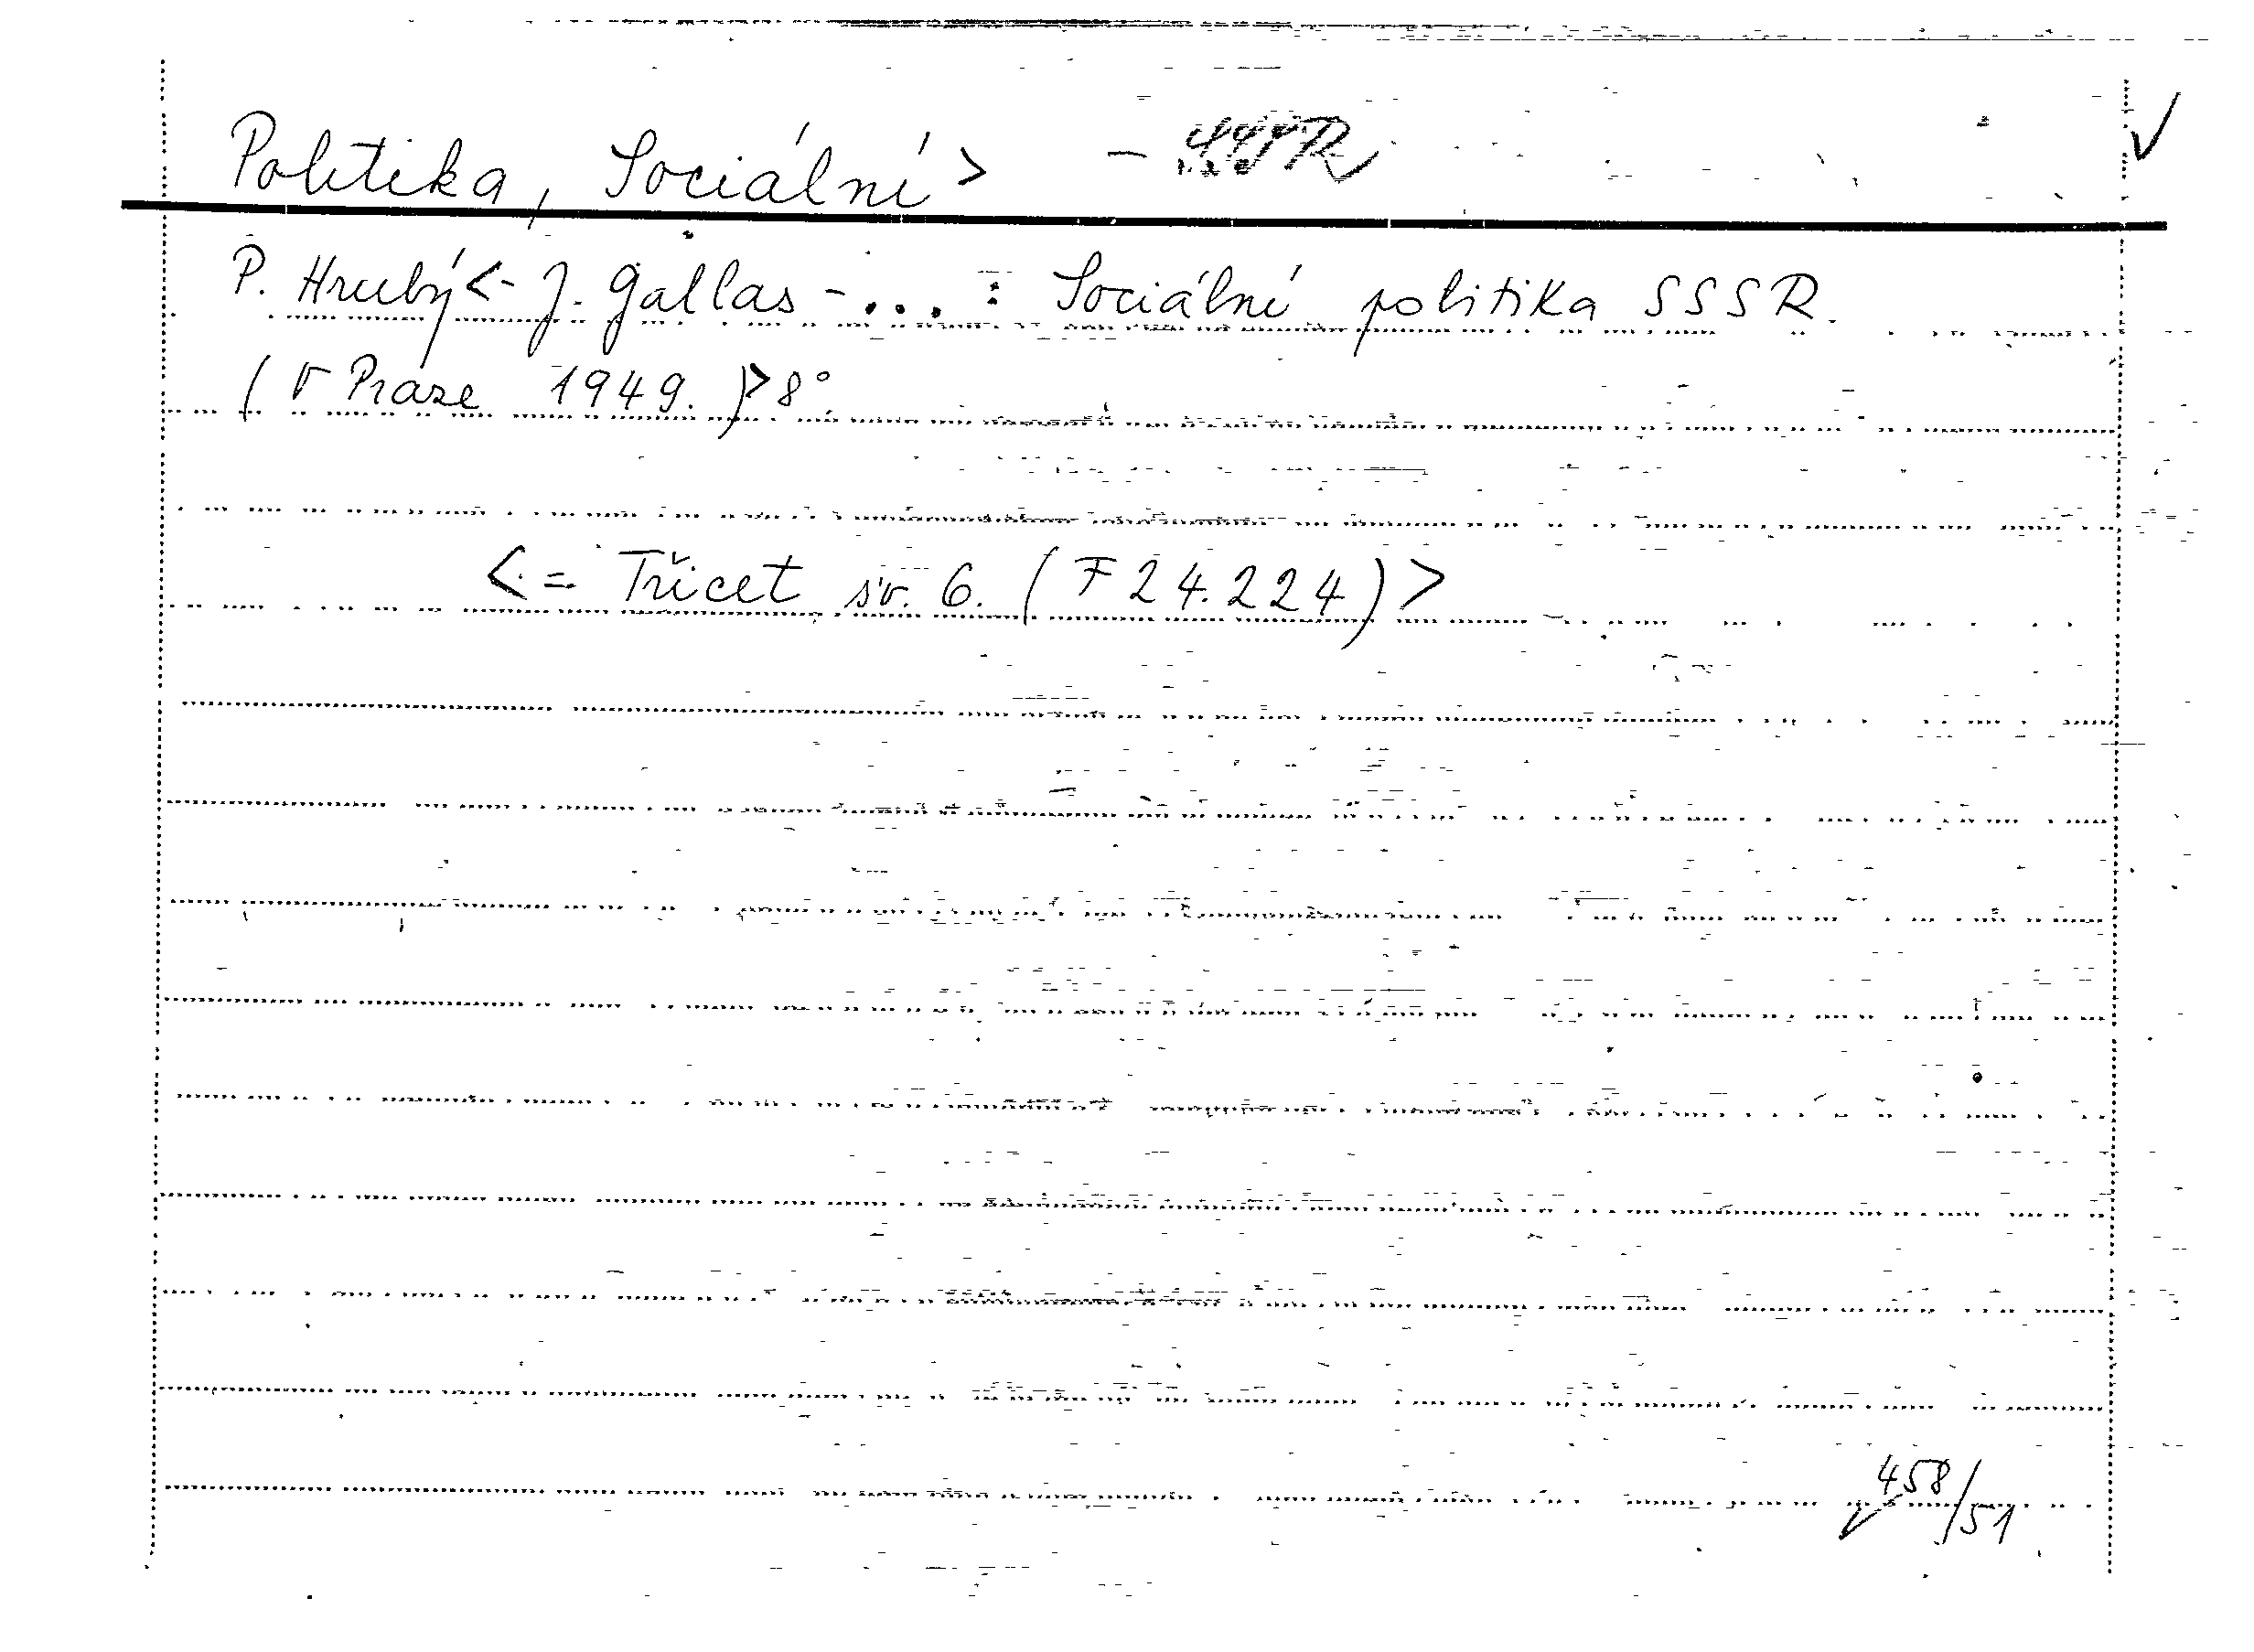 Politika, Sociální > -
P. Hrubý <- J. Gallas - ... : Sociální politika SSSR.
(V Praze 1949.) > 8°
<. = Třicet sv. 6. (F 24.224) >
458/51